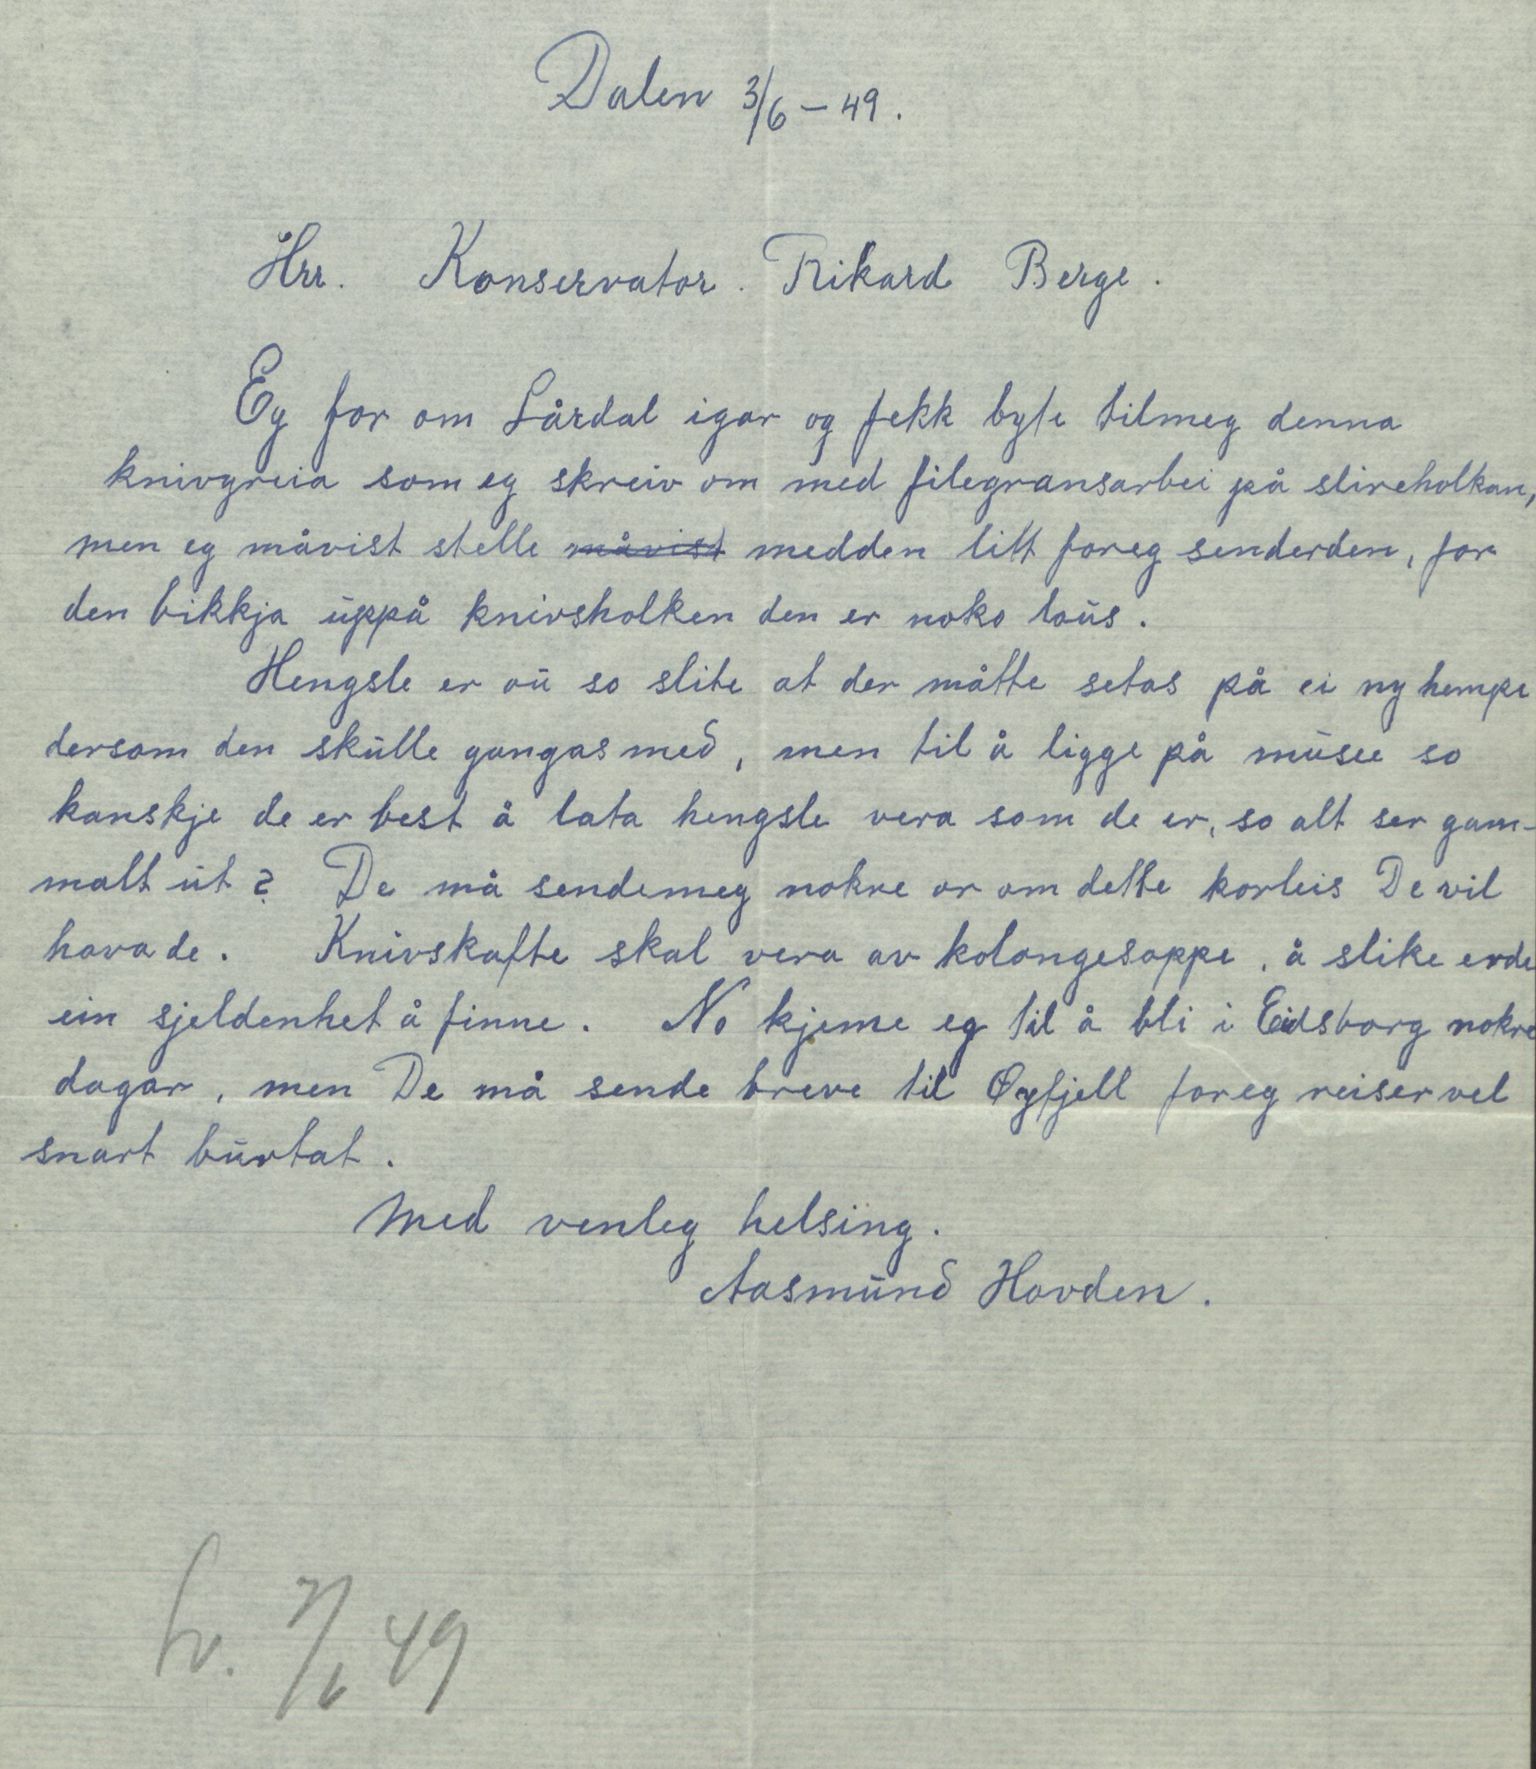 Dalen 3/6 – 49.
Hrr. Konservator. Rikard Berge.
Eg for om Lårdal igar og fekk byte tilmeg denna
knivgreia som eg skreiv om med filegransarbei på slireholkan,
men eg måvist stelle ~~måvist~~ medden litt foreg senderden, for
den bikkja uppå knivsholken den er noko laus.
Hengsle er ou so slite at der måtte setas på ei ny hempe
dersom den skulle gangas med, men til å ligge på musee so
kanskje de er best å lata hengsle vera som de er, so alt ser gam-
malt ut? De må sendemeg nokre or om dette korleis De vil
hava de. Knivskafte skal vera av kolongesoppe, å slike erde
ein sjeldenhet å finne. No kjeme eg til å bli i Eidsborg nokre
dagar, men De må sende breve til Øyfjell foreg reiser vel
snart burtat.
Med venleg helsing.
Aasmund Hovden.
Sv. 7/6 49